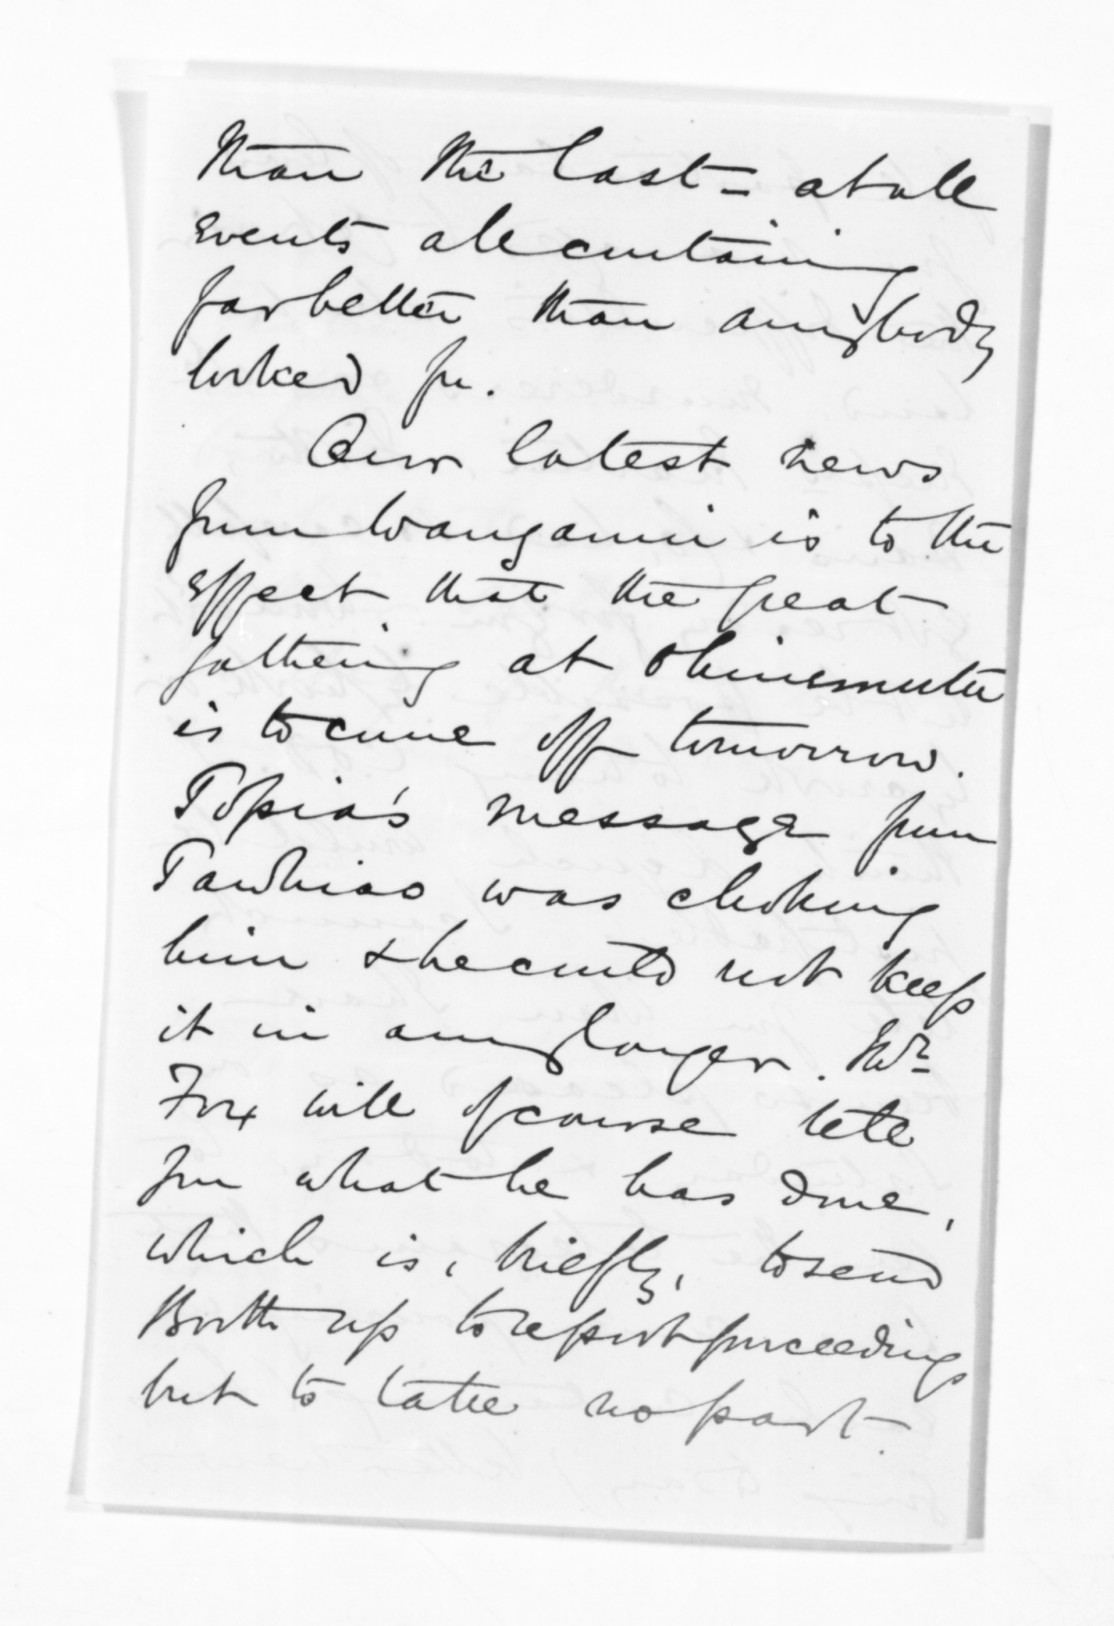 than the last = at all
events all certain
far better than anybody
looked for.
Our latest news
from Wanganui is to the
effect that the great
gathering at Ohinemutu
is to come off tomorrow.
Topia's message from
Tawhiao was choking
him & he could not keep
it in any longer. Mr
Fox will of course tell
you what he has done,
which is, briefly, to send
Booth up to report proceedings
but to take no part.